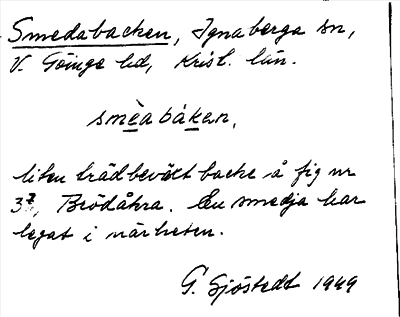 Smedabacken, Ignaberga sn,
V. Göinge hd, Krist. län.
smèabáken,
liten trädbeväxt backe å fig nr
3⁷, Brödåkra. En smedja har
legat i närheten.
G. Sjöstedt 1949